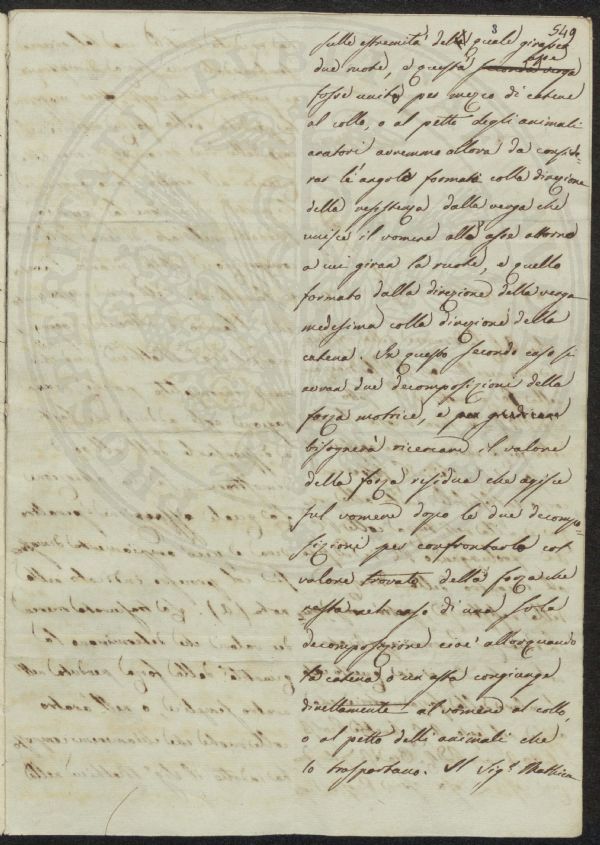 3
549
sulle estremità della quale girasser
due ruote, e questa seconda verga
asse
fosse unita per mezzo di catene
al collo, o al petto degli animali
aratori avremmo allora da conside-
rar l'angolo formato colla direzione
della resistenza dalla verga che
unisce il vomere all' asse attorno
a cui giran le ruote, e quello
formato dalla direzione della verga
medesima colla direzione della
catena. In questo secondo caso si
avran due decomposizioni della
forza motrice, e
bisognerà ricercare il valore
della forza residua che agisce
sul vomere dopo le due decompo-
sizioni per confrontarlo col
valore trovato della forza che
resta nel caso di una sola
decomposizione cioè allorquando
la catena, o un asta congiunge
direttamente al vomere al collo,
o al petto delli animali che
lo trasportano. Il Sig.r